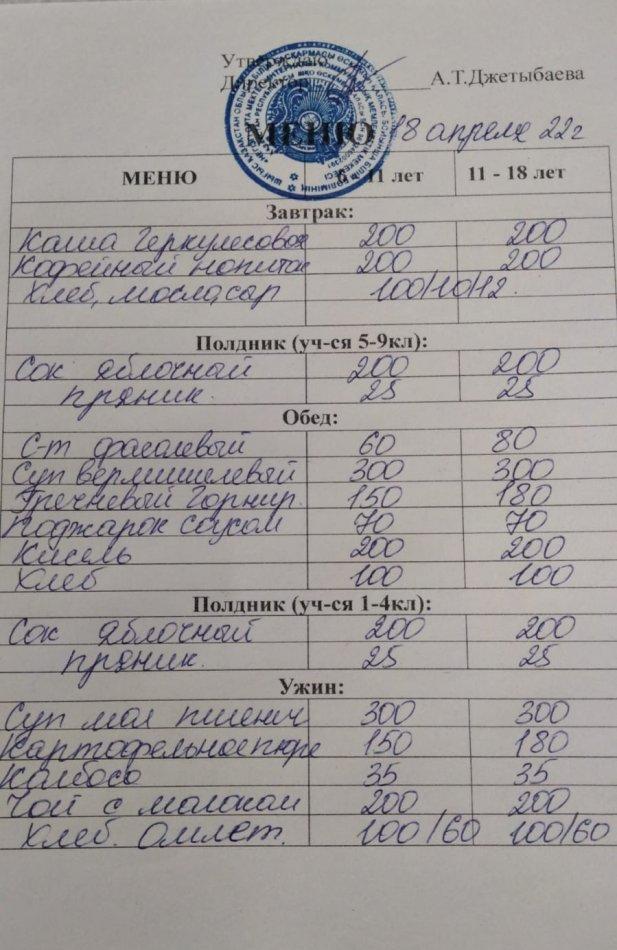 Утверждаю
Директор А.Т.Джетыбаева
МЕНЮ 18 апреля 22г
МЕНЮ 6 - 11 лет 11 - 18 лет
Завтрак:
Каша Геркулесовая 200 200
Кофейный напиток 200 200
Хлеб, масло, сыр 100/10/12.
Полдник (уч-ся 5-9кл):
Сок яблочный 200 200
пряник. 25 25
Обед:
С-т фасолевый 60 80
Суп вермишелевый 300 300
Гречневый Горнир. 150 180
Поджарок соусом 70 70
Кисель 200 200
Хлеб 100 100
Полдник (уч-ся 1-4кл):
Сок яблочный 200 200
пряник. 25 25
Ужин:
Суп мол пшенич 300 300
Картофельное пюре 150 180
Колбоса 35 35
Чай с молоком 200 200
Хлеб. Омлет. 100/60 100/60